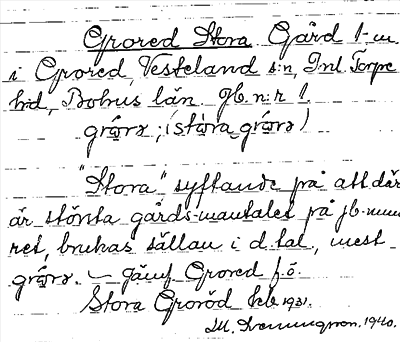 Grored Stora Gård 1 m.
i Grored, Vesteland s:n, Inl. Torpe
hd, Bohus län. Jb. n:r 1.
grɷ̄rə, i stɷ̀ra grɷ̄rə)
"Stora" syftande på att där
är största gårds-mantalet på jb.num
ret, brukas sällan i d. tal., mest
grɷ̄rə. – Jämf. Grored f. ö.
Stora Groröd kb 1931.
M. Hemmingsson. 1940.